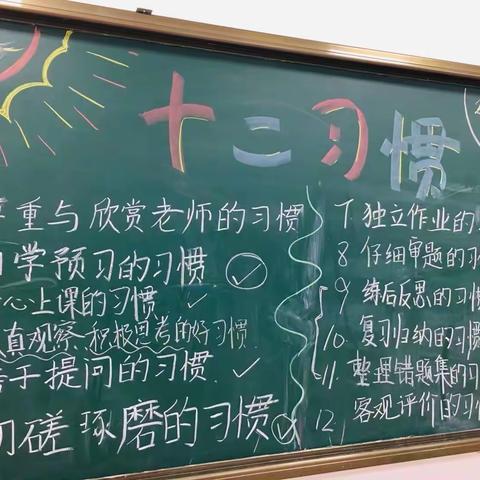 十二习惯
重与欣赏老师的习惯
学预习的习惯
心上课的习惯
真观察、积极思考的好习惯
于提问的习惯
切磋琢磨的习惯
7. 独立作业的
8 仔细审题的习
9 练后反思的习惯
10. 复习归纳的习惯
11. 整理错题集的习
12. 客观评价的习惯